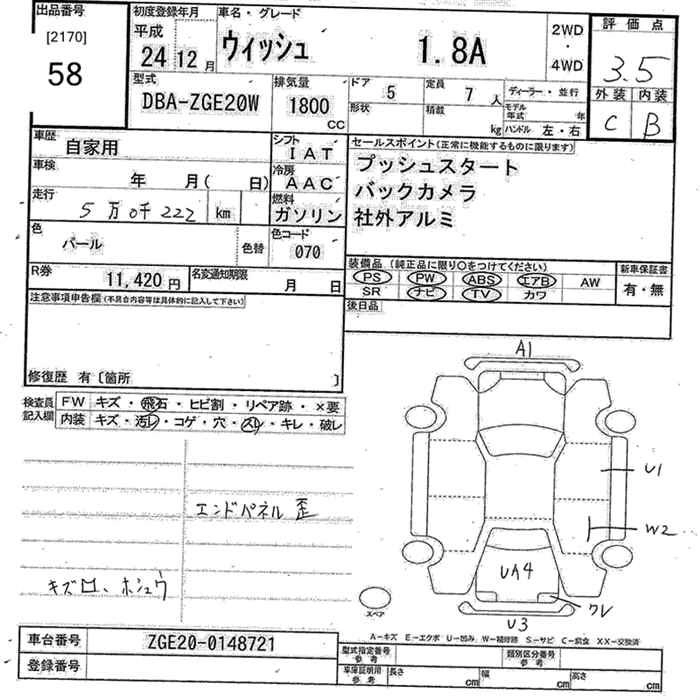 出品番号
[2170]
58
初度登録年月
平成
24 12月
車名・グレード
ウィッシュ 1.8A
2WD
・
4WD
評価点
3.5
外装 内装
C B
型式
DBA-ZGE20W
排気量
1800
CC
ドア 5
定員 7人
形状
積載 kg
ディーラー・並行
モデル年式 年
ハンドル 左・右
車歴
自家用
シフト
IAT
車検
年 月( 日)
冷房
AAC
走行
5万0千222 km
燃料
ガソリン
色
パール
色替
色コード
070
R券
11,420円
名変通知期限
月 日
セールスポイント(正常に機能するものに限ります)
プッシュスタート
バックカメラ
社外アルミ
装備品(純正品に限り○をつけてください)
PS PW ABS エアB AW
SR ナビ TV カワ
新車保証書
有・無
後日品
注意事項申告欄(不具合内容等は具体的に記入して下さい)
修復歴 有〔箇所 〕
検査員
記入欄
FW キズ・飛石・ヒビ割・リペア跡・×要
内装 キズ・汚レ・コゲ・穴・スレ・キレ・破レ
エンドパネル歪
キズロ、ホシュウ
A1
U1
W2
UA4
クレ
U3
スペア
A-キズ E-エクボ U-凹み W-補修跡 S-サビ C-腐食 XX-交換済
車台番号
ZGE20-0148721
登録番号
型式指定番号
参考
類別区分番号
参考
車庫証明用
参考
長さ cm
幅 cm
高さ cm